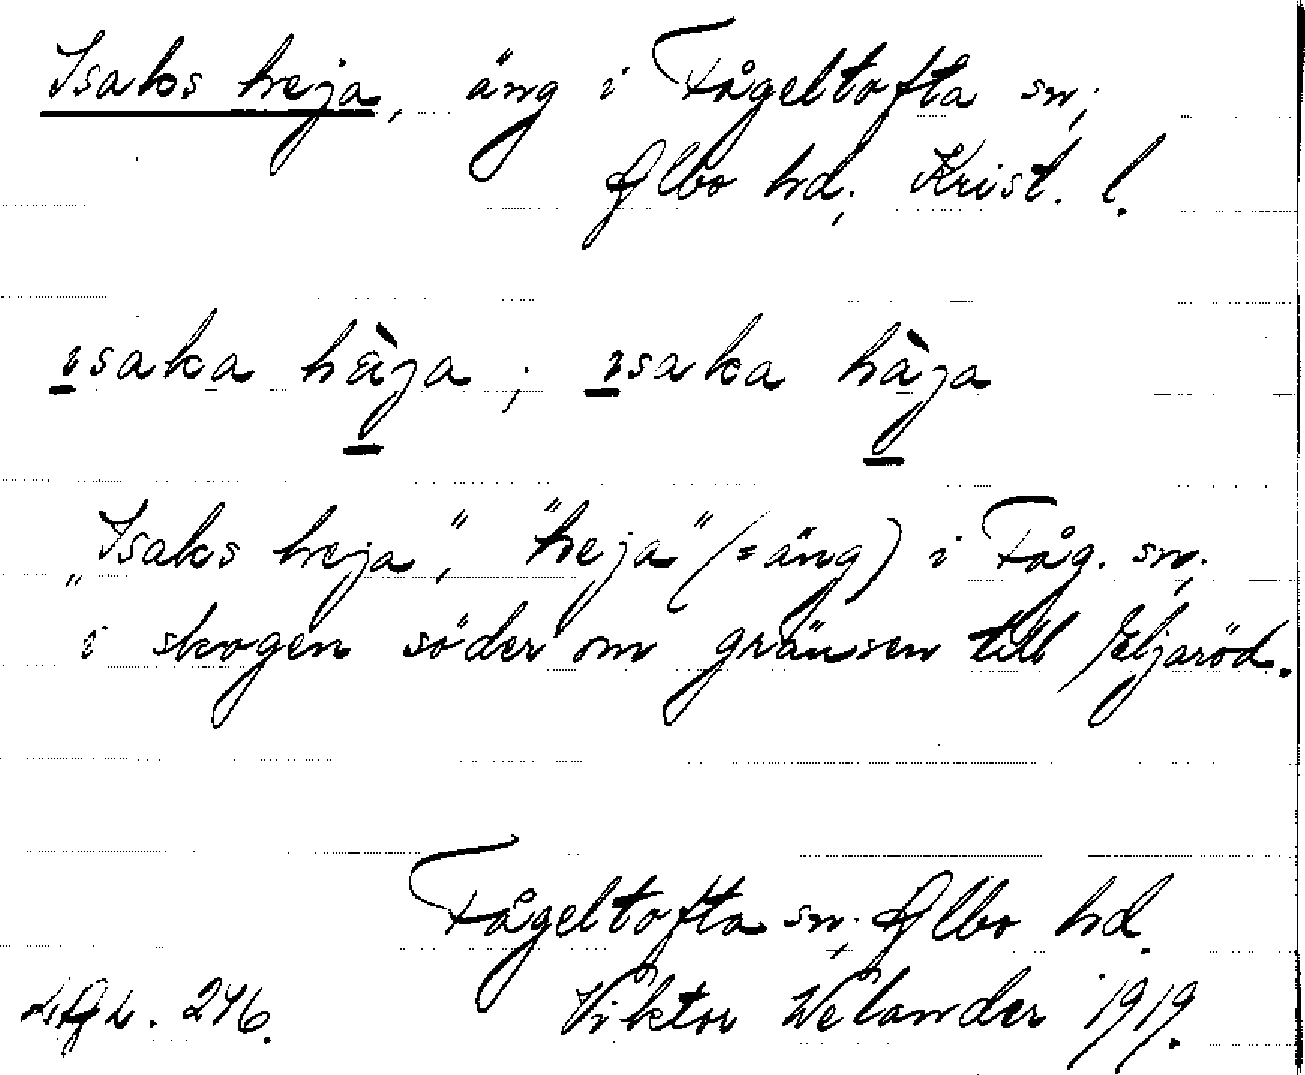 Isaks heja, äng i Fågeltofta sn;
Albo hd; Krist. l.
ısaka hä̀ja ; ısaka hàja
„Isaks heja”, "heja" (= äng) i Fåg. sn;
i skogen söder om gränsen till Eljaröd.
Fågeltofta sn; Albo hd.
LAL. 246. Viktor Welander 1919.